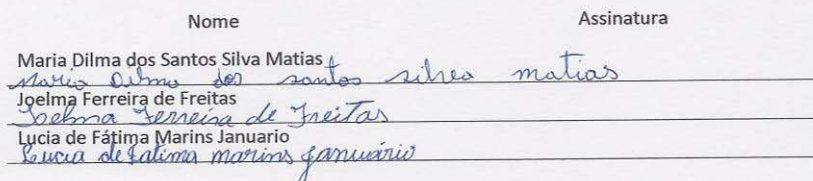 Nome Assinatura
Maria Dilma dos Santos Silva Matias
Maria Dilma dos santos silva matias
Joelma Ferreira de Freitas
Joelma Ferreira de Freitas
Lucia de Fátima Marins Januario
Lucia de Fatima marins januário